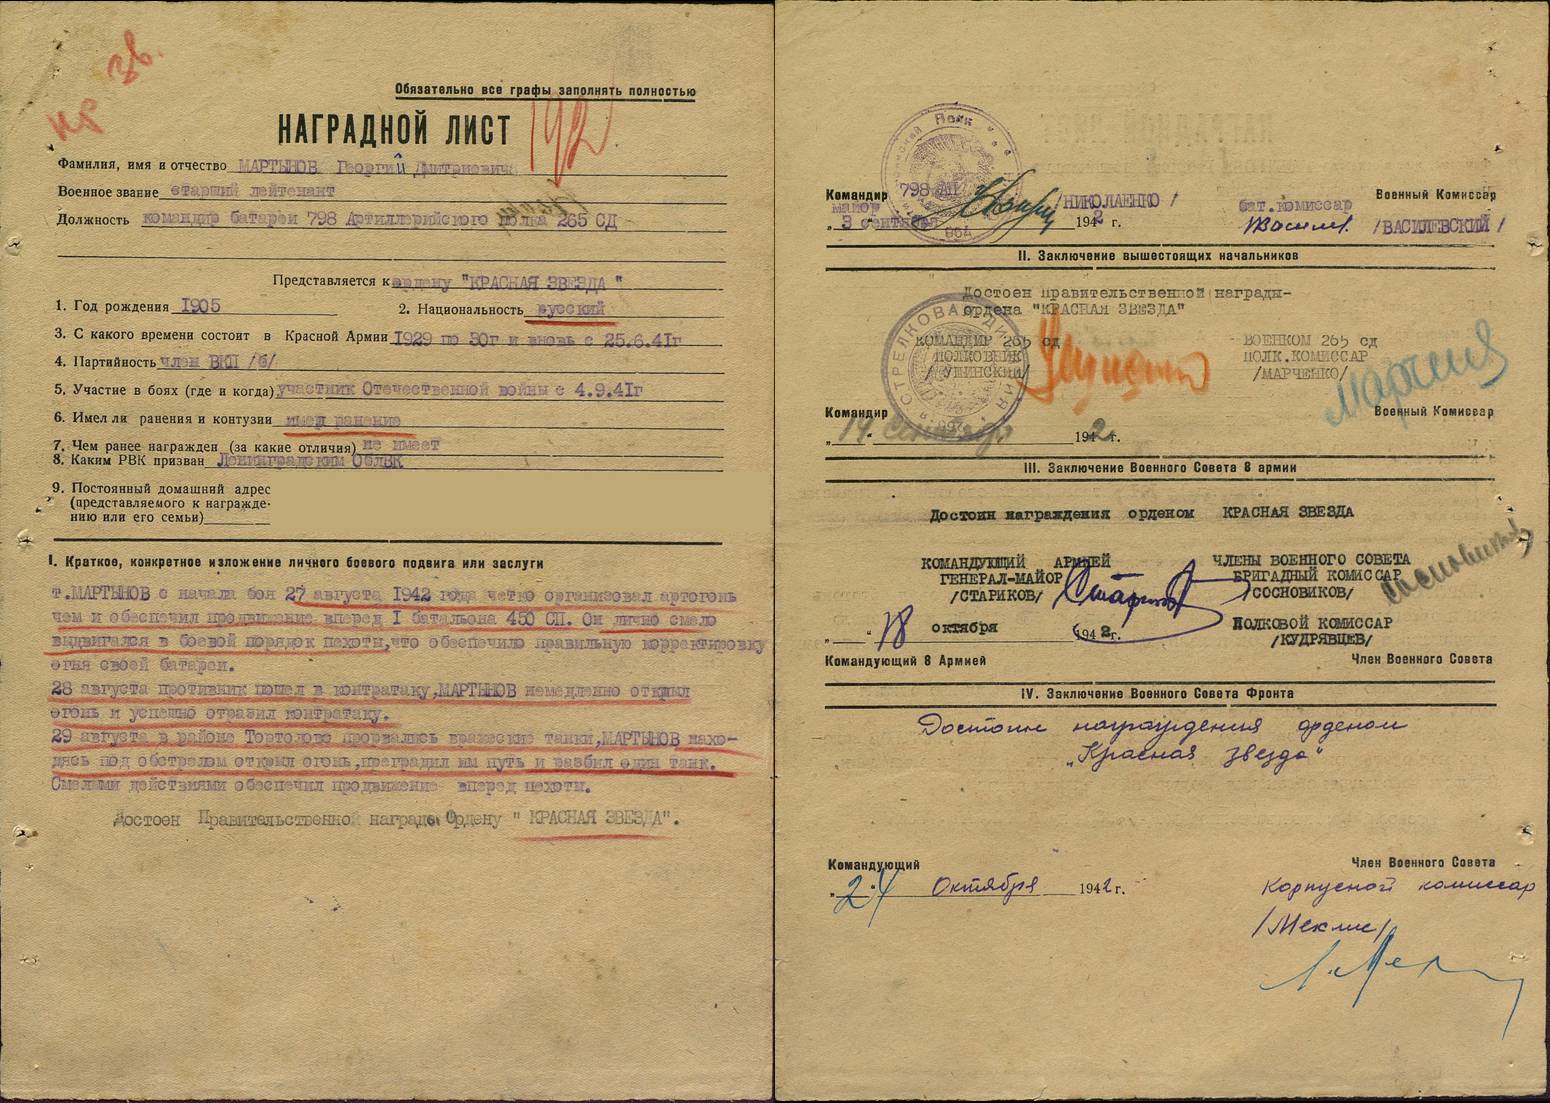 Кр Зв.
Обязательно все графы заполнять полностью
192
НАГРАДНОЙ ЛИСТ
Фамилия, имя и отчество МАРТЫНОВ Георгий Дмитриевич
Военное звание старший лейтенант
Должность командир батареи 798 Артиллерийского полка 265 СД
Представляется к ордену "КРАСНАЯ ЗВЕЗДА"
1. Год рождения 1905 2. Национальность русский
3. С какого времени состоит в Красной Армии 1929 по 30г и вновь с 25.6.41г
4. Партийность член ВКП /б/
5. Участие в боях (где и когда) участник Отечественной войны с 4.9.41г
6. Имел ли ранения и контузии имел ранение
7. Чем ранее награжден (за какие отличия) не имеет
8. Каким РВК призван Ленинградским ОблВК
9. Постоянный домашний адрес
(представляемого к награжде-
нию или его семьи)
I. Краткое, конкретное изложение личного боевого подвига или заслуги
т.МАРТЫНОВ с начала боя 27 августа 1942 года четко организовал артогонь
чем и обеспечил продвижение вперед I батальона 450 СП. Он лично смело
выдвигался в боевой порядок пехоты,что обеспечило правильную корректировку
огня своей батареи.
28 августа противник пошел в контратаку,МАРТЫНОВ немедленно открыл
огонь и успешно отразил контратаку.
29 августа в районе Тортолово прорвались вражеские танки,МАРТЫНОВ нахо-
дясь под обстрелом открыл огонь,преградил им путь и разбил один танк.
Смелыми действиями обеспечил продвижение вперед пехоты.
Достоен Правительственной награде Ордену "КРАСНАЯ ЗВЕЗДА".
Полк
Командир 798 АП Военный Комиссар
майор /НИКОЛАЕНКО/ бат.комиссар
„ 3 сентября 1942 г. /ВАСИЛЕВСКИЙ/
864
II. Заключение вышестоящих начальников
Достоен правительственной награды-
ордена "КРАСНАЯ ЗВЕЗДА"
СТРЕЛКОВАЯ ДИВИЗИЯ
КОМАНДИР 265 сд ВОЕНКОМ 265 сд
ПОЛКОВНИК ПОЛК.КОМИССАР
/УШИНСКИЙ/ /МАРЧЕНКО/
Командир Военный Комиссар
„ 19 Сентября 1942 г.
III. Заключение Военного Совета 8 армии
Достоин награждения орденом КРАСНАЯ ЗВЕЗДА
КОМАНДУЮЩИЙ АРМИЕЙ ЧЛЕНЫ ВОЕННОГО СОВЕТА
ГЕНЕРАЛ-МАЙОР БРИГАДНЫЙ КОМИССАР
/СТАРИКОВ/ /СОСНОВИКОВ/
„ 18 октября 1942г. ПОЛКОВОЙ КОМИССАР
/КУДРЯВЦЕВ/
Командующий 8 Армией Член Военного Совета
IV. Заключение Военного Совета Фронта
Достоин награждения орденом
„Красная звезда"
Командующий Член Военного Совета
„24" Октября 1942 г. Корпусной комиссар
/Мехлис/